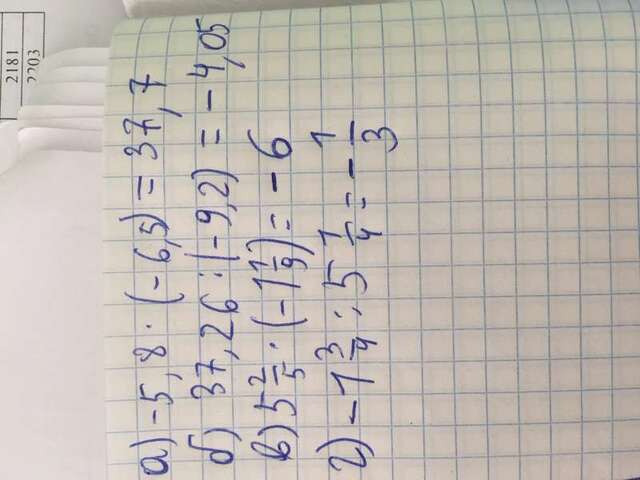 2181
2203
а) -5,8 · (-6,5) = 37,7
б) 37,26 : (-9,2) = -4,05
в) 5 2/5 · (-1 1/9) = -6
г) -1 3/4 : 5 1/4 = - 1/3